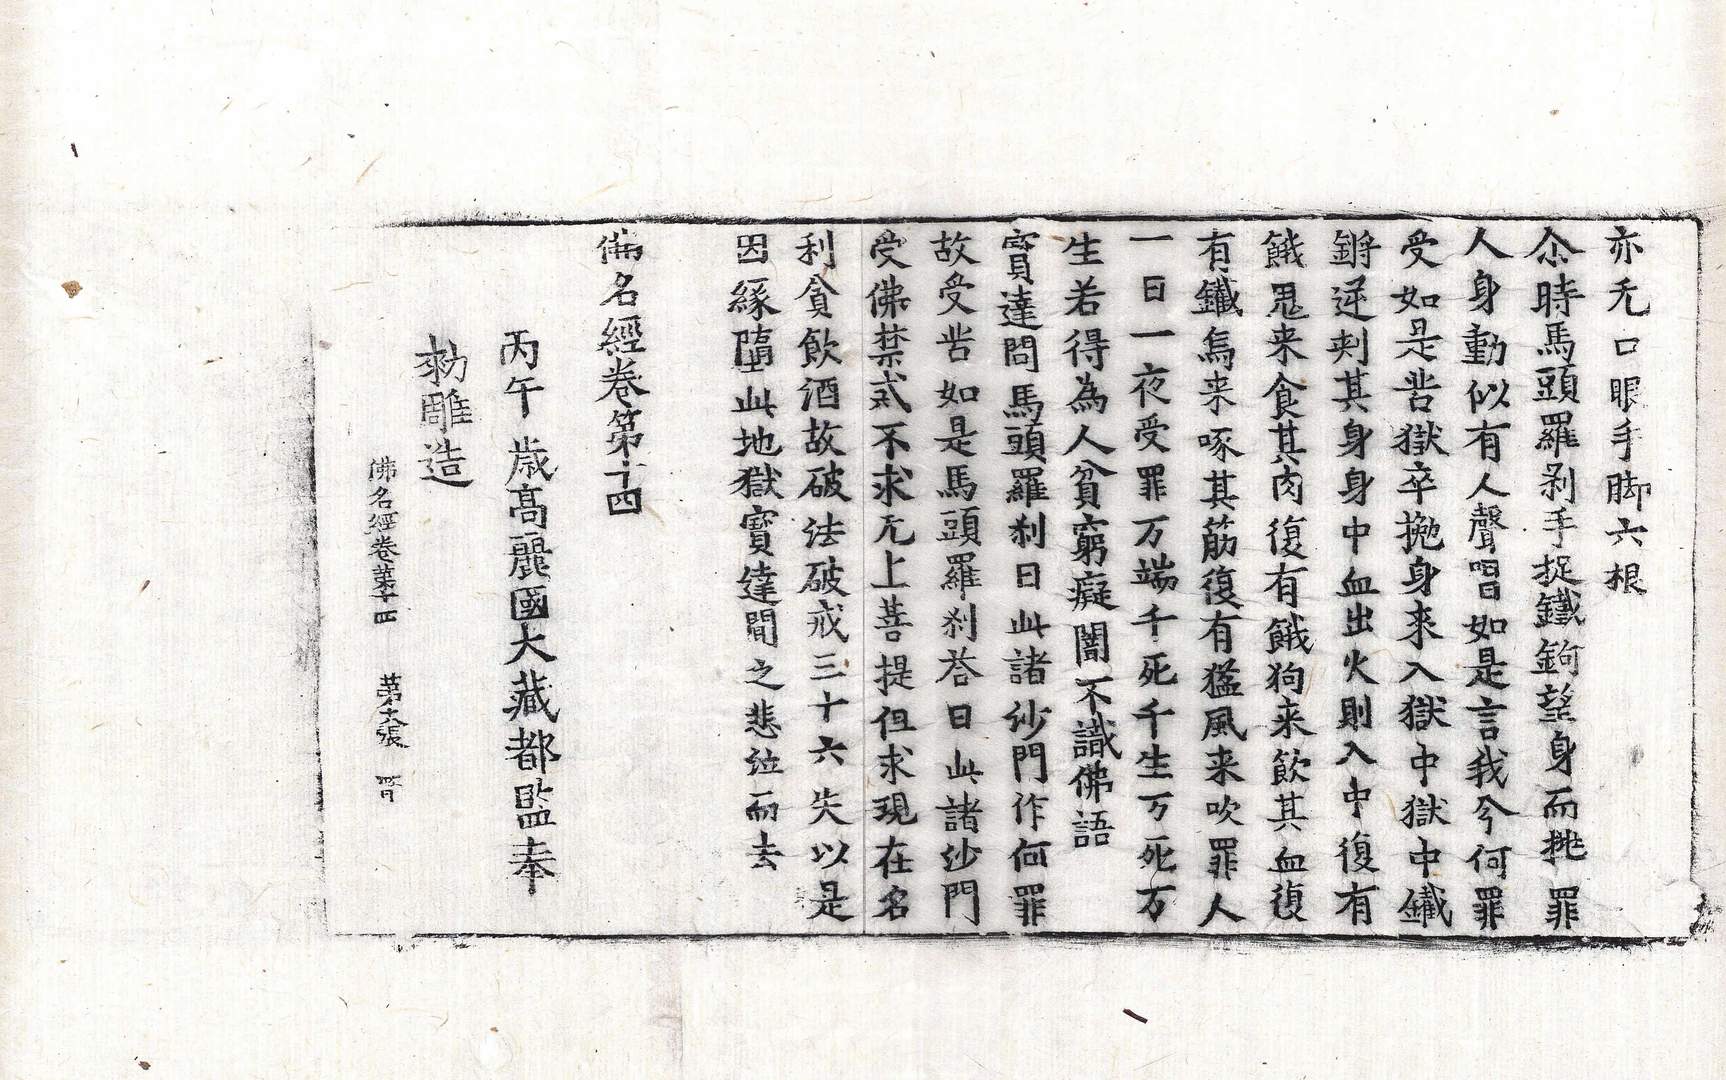 亦无口眼手脚六根
尒時馬頭羅刹手捉鐵鉤望身而挑罪
人身動似有人聲唱曰如是言我今何罪
受如是苦獄卒擲身來入獄中獄中鐵
鏘逆刾其身身中血出火則入中復有
餓鬼来食其肉復有餓狗来飲其血復
有鐵烏来啄其筋復有猛風来吹罪人
一日一夜受罪万端千死千生万死万
生若得為人貧窮癡闇不識佛語
寳達問馬頭羅刹曰此諸沙門作何罪
故受苦如是馬頭羅刹荅曰此諸沙門
受佛禁戒不求无上菩提但求現在名
利貪飲酒故破法破戒三十六失以是
因緣墮此地獄寳達聞之悲泣而去
佛名經卷第十四
丙午歲高麗國大藏都監奉
勑雕造
佛名經卷第十四 第張